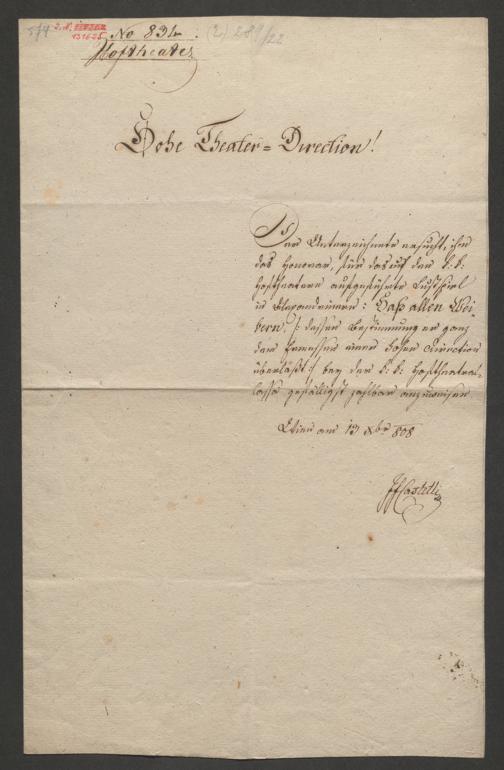 No 834.
Hoftheater
Hohe Theater=Direction!
Der Unterzeichnete ersucht, ihm
das Honorar, für das auf den k. k.
Hoftheatern aufgeführte Lustspiel
in Alexandrinern: Haß allen Wei
bern. /: dessen Bestimmung er ganz
dem Ermessen einer hohen Direction
überläßt :/ bey der k. k. Hoftheatral-
cassa gefälligst zahlbar anzuweisen
Wien am 13 Xbr 808
JFCastelli